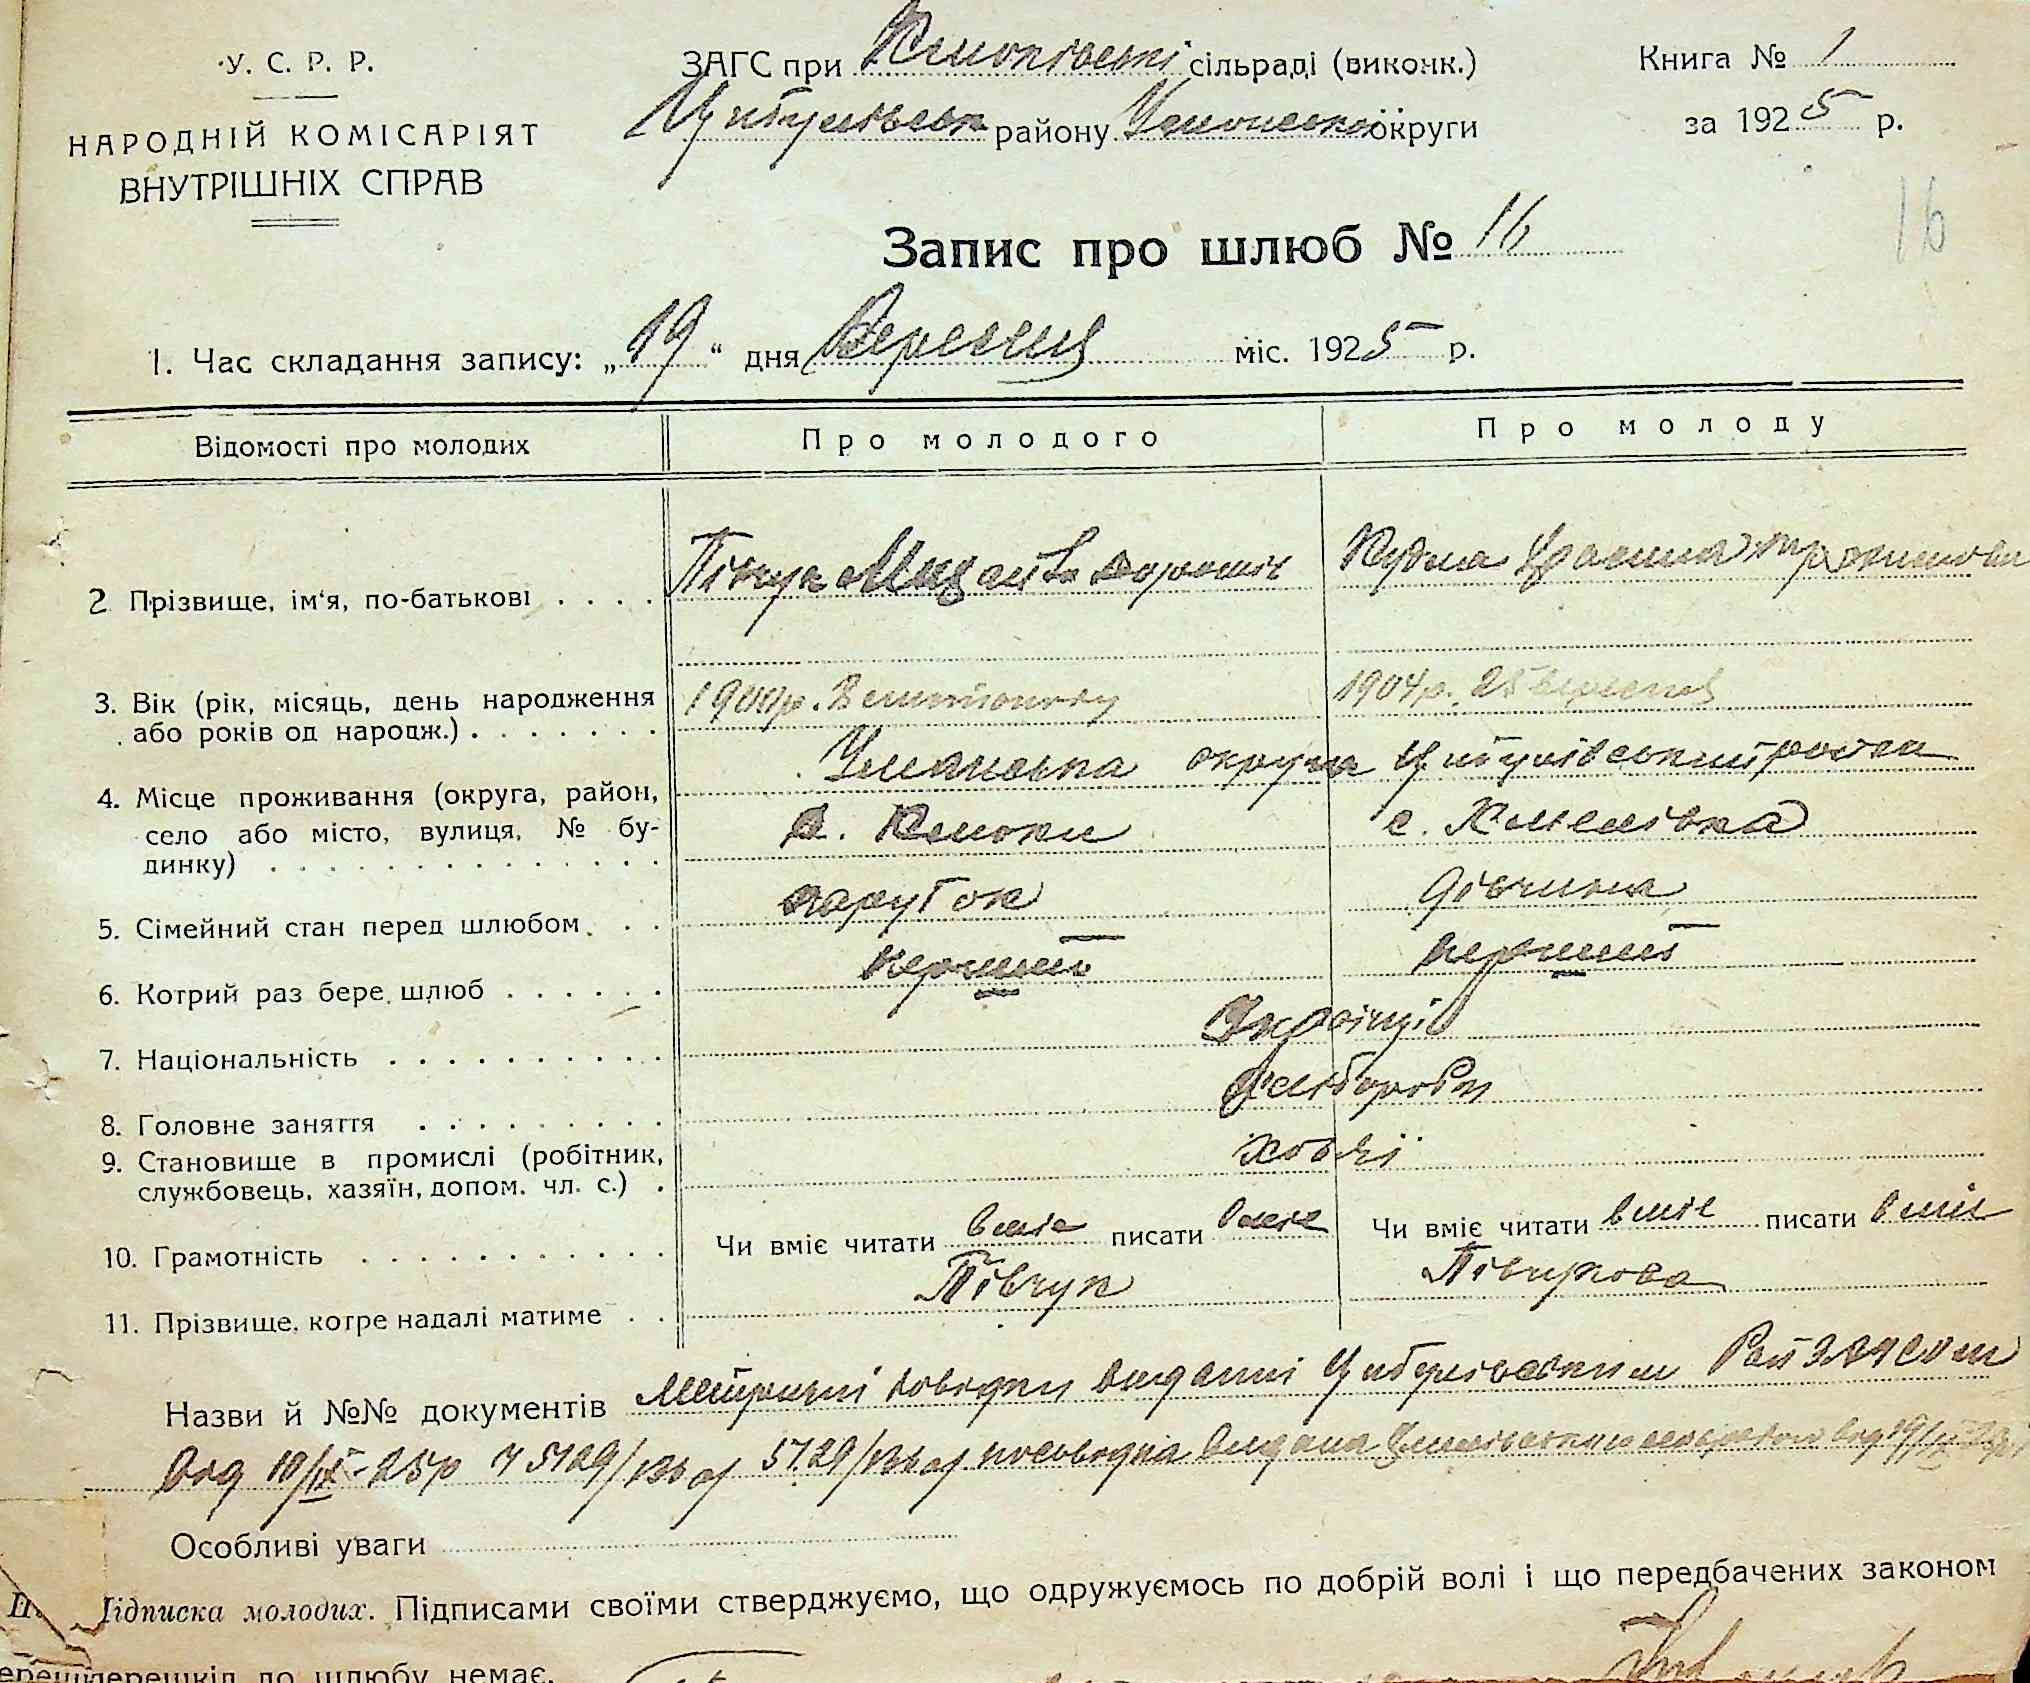 У. С. Р. Р.
НАРОДНІЙ КОМІСАРІЯТ
ВНУТРІШНІХ СПРАВ
ЗАГС при сільраді (виконк.)
Цибулівськ району Уманської округи
Книга № 1
за 1925 р.
16
Запис про шлюб № 16
1. Час складання запису: „19“ дня Вересня міс. 1925 р.
Відомості про молодих Про молодого Про молоду
2 Прізвище, ім'я, по-батькові . . . . Півчук Кудла
3. Вік (рік, місяць, день народження 1904р. 25 вересня
або років од народж.) . . . . . . .
Уманська округа Цибулівський район
4. Місце проживання (округа, район,
село або місто, вулиця, № бу- с.
динку) . . . . . . . . . . . . . .
парубок дівчина
5. Сімейний стан перед шлюбом . . .
перший перший
6. Котрий раз бере шлюб . . . . . .
Українці
7. Національність . . . . . . . . . .
Хлібороби
8. Головне заняття . . . . . . . . .
9. Становище в промислі (робітник,
службовець, хазяїн, допом. чл. с.) .
10. Грамотність . . . . . . . . . . . Чи вміє читати вміє писати вміє Чи вміє читати вміє писати вміє
11. Прізвище, котре надалі матиме . . Півчук Півчукова
Назви й №№ документів Метричні довідки видані Цибулівським Рай ЗАГСом
від 10/IX-25р Ч 5129/ 5129/ видана від 19/IX
Особливі уваги
II. Підписка молодих. Підписами своїми стверджуємо, що одружуємось по добрій волі і що передбачених законом
перешкід до шлюбу немає.